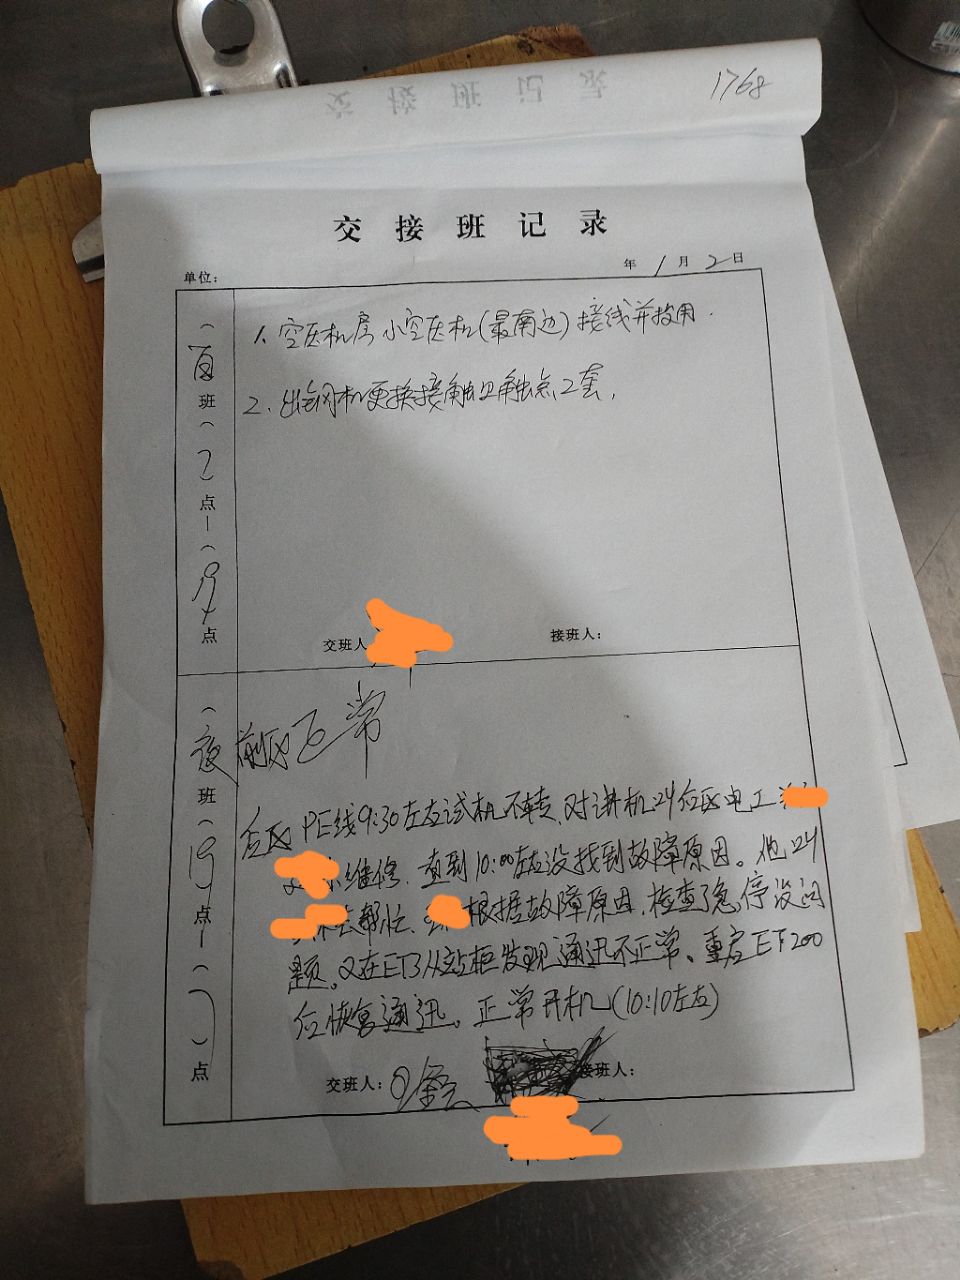 1768
交接班记录
单位：
年 1 月 2 日
（白班（7点—（19点
1、空压机房小空压机（最南边）接线并投用.
2、出钢机更换接触器触点2套.
交班人
接班人：
（夜班（19点—（7）点
前区正常
后区PE线9:30左右试机不转,对讲机叫后区电工
维修,直到10:00左右没找到故障原因。他叫
去帮忙、根据故障原因,检查急停没问
题。又在ET3从站柜发现通讯不正常、重启ET200
后恢复通讯。正常开机（10:10左右）
交班人：
接班人：